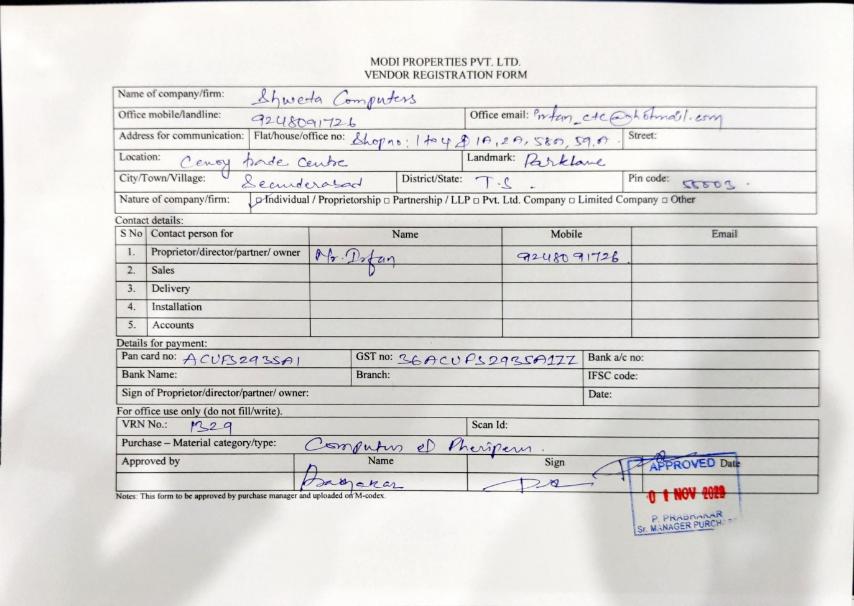 MODI PROPERTIES PVT. LTD.
VENDOR REGISTRATION FORM
Name of company/firm: Shweta Computers
Office mobile/landline: 9248091726 Office email:
Address for communication: Flat/house/office no: Shop no: 1 to 4 & 1A, 2A, 58A, 59A. Street:
Location: Cenoy trade Centre Landmark: Parklane
City/Town/Village: Secunderabad District/State: T.S. Pin code:
Nature of company/firm: Individual / Proprietorship □ Partnership / LLP □ Pvt. Ltd. Company □ Limited Company □ Other
Contact details:
S No Contact person for Name Mobile Email
1. Proprietor/director/partner/ owner Mr. Irfan 9248091726
2. Sales
3. Delivery
4. Installation
5. Accounts
Details for payment:
Pan card no: GST no: Bank a/c no:
Bank Name: Branch: IFSC code:
Sign of Proprietor/director/partner/ owner: Date:
For office use only (do not fill/write).
VRN No.: 1329 Scan Id:
Purchase – Material category/type: Computers
Approved by Name Sign Date
Notes: This form to be approved by purchase manager and uploaded on M-codex.
APPROVED
01 NOV
P. PRABHAKAR
Sr. MANAGER PURCH